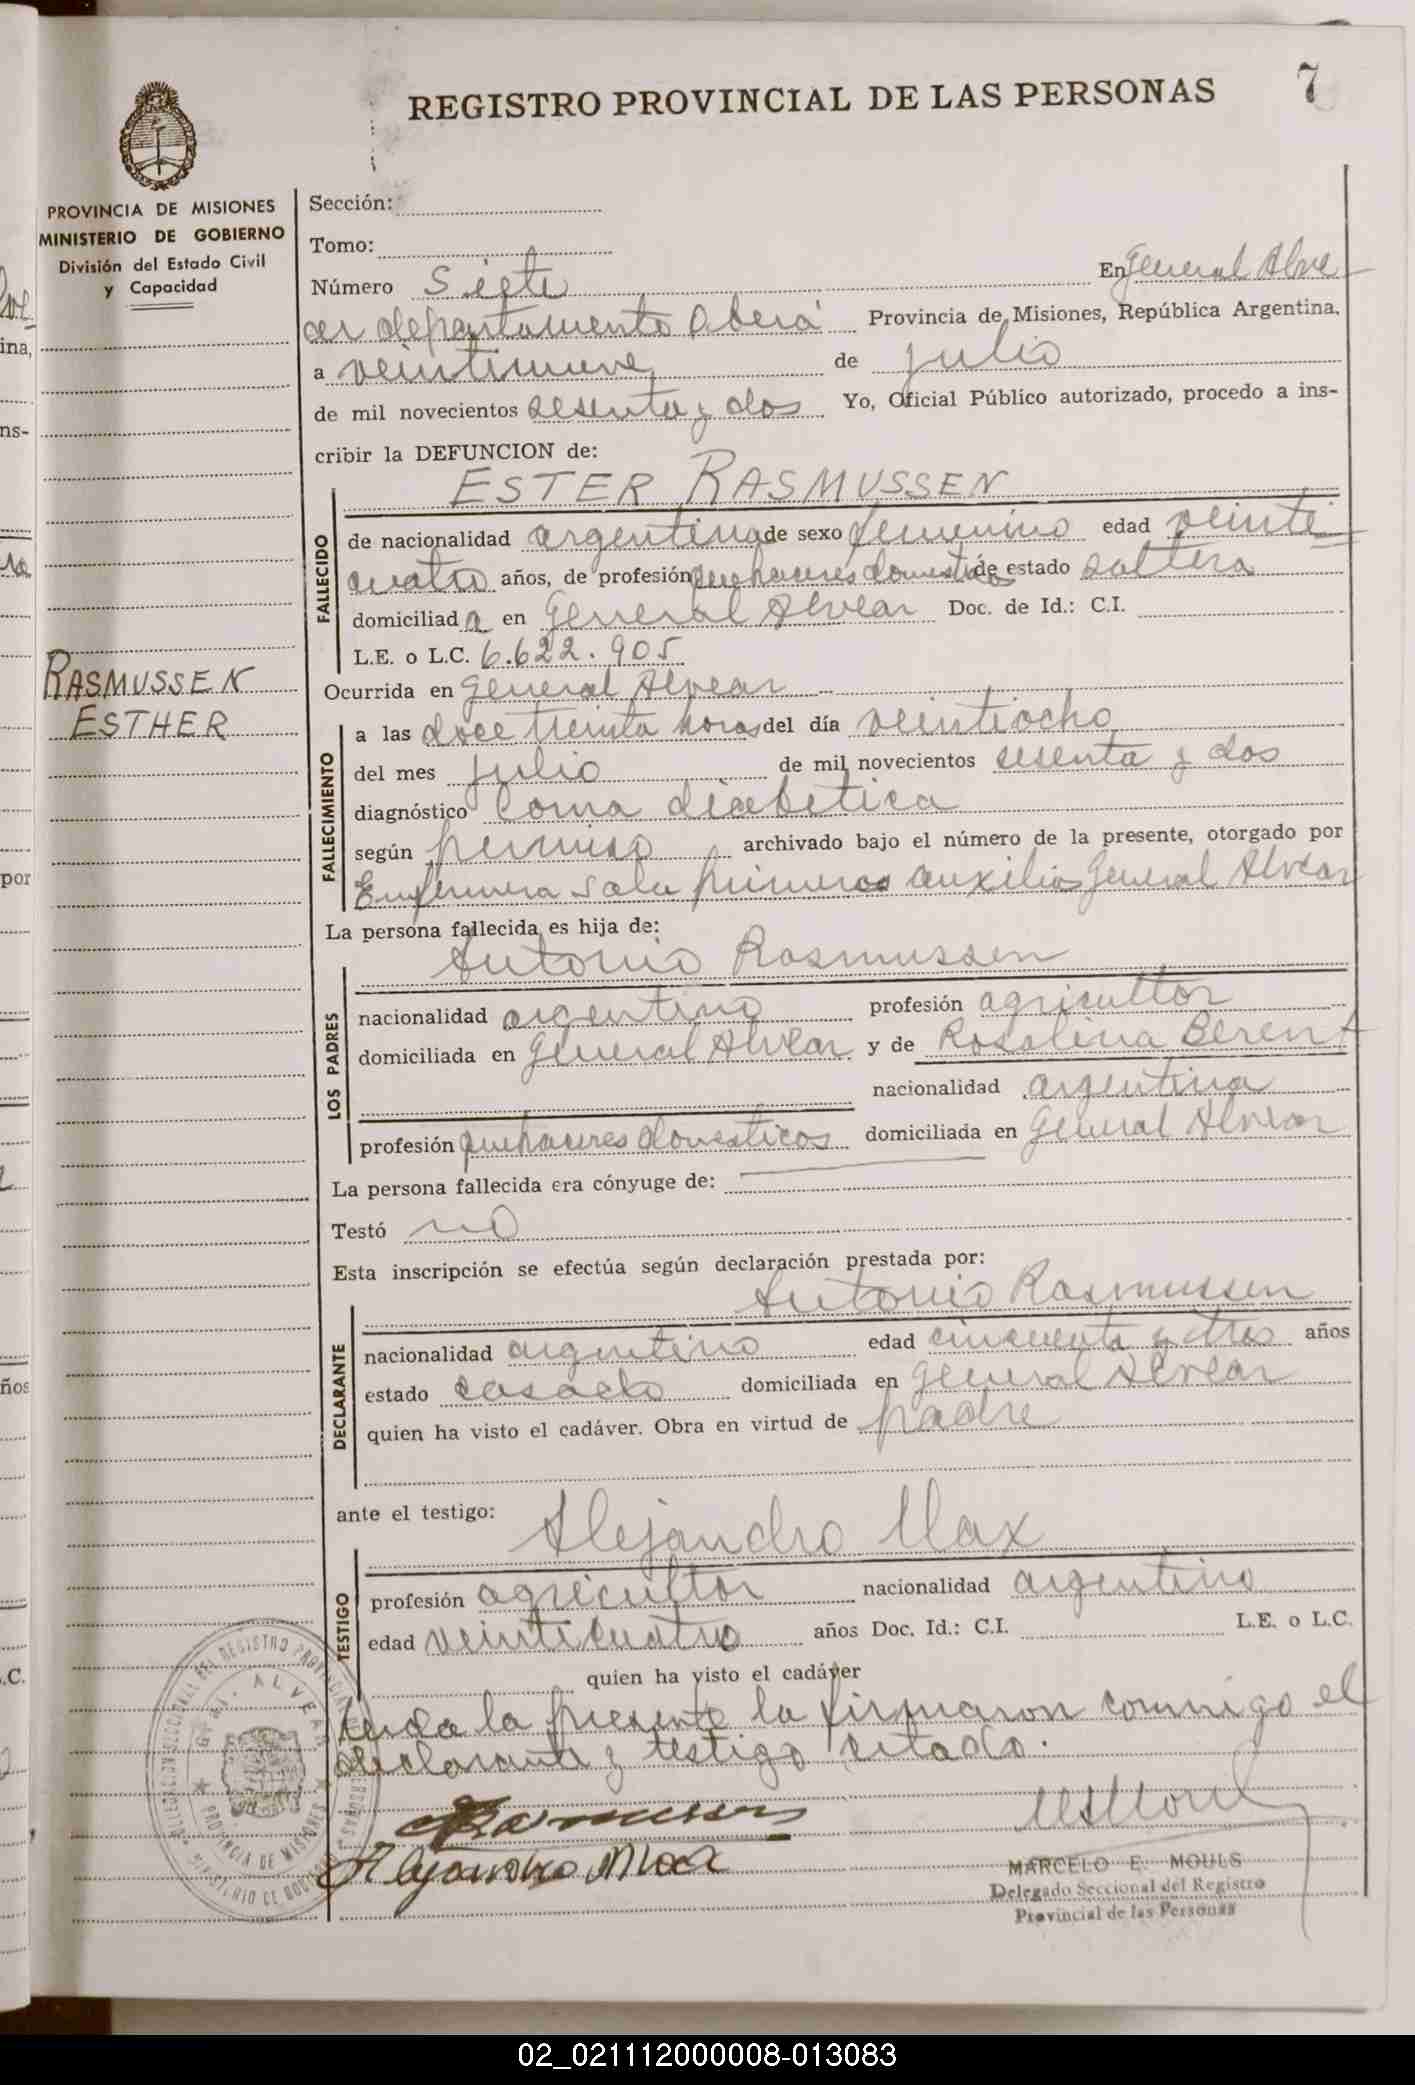 7
REGISTRO PROVINCIAL DE LAS PERSONAS
PROVINCIA DE MISIONES
MINISTERIO DE GOBIERNO
División del Estado Civil
y Capacidad
RASMUSSEN
ESTHER
Sección:
Tomo:
Número Siete En General Alve
ar departamento Oberá Provincia de Misiones, República Argentina,
a veintinueve de julio
de mil novecientos sesenta y dos Yo, Oficial Público autorizado, procedo a ins-
cribir la DEFUNCION de:
ESTER RASMUSSEN
FALLECIDO
de nacionalidad argentina de sexo femenino edad veinti
cuatro años, de profesión quehaceres domesticos de estado soltera
domiciliada en General Alvear Doc. de Id.: C.I.
L.E. o L.C. 6.622.905
Ocurrida en General Alvear
FALLECIMIENTO
a las doce treinta horas del día veintiocho
del mes julio de mil novecientos sesenta y dos
diagnóstico Coma diabetica
según permiso archivado bajo el número de la presente, otorgado por
Enfermera sala primeros auxilios General Alvear
La persona fallecida es hija de:
Antonio Rasmussen
LOS PADRES
nacionalidad argentino profesión agricultor
domiciliada en General Alvear y de Rosalina Berent
nacionalidad argentina
profesión quehaceres domesticos domiciliada en General Alvear
La persona fallecida era cónyuge de:
Testó no
Esta inscripción se efectúa según declaración prestada por:
Antonio Rasmussen
DECLARANTE
nacionalidad argentino edad cincuenta y tres años
estado casado domiciliada en General Alvear
quien ha visto el cadáver. Obra en virtud de padre
ante el testigo:
Alejandro Max
TESTIGO
profesión agricultor nacionalidad argentino
edad veinticuatro años Doc. Id.: C.I. L.E. o L.C.
quien ha visto el cadáver
leida la presente la firmaron conmigo el
declarante y testigo citado.
Rasmussen
Alejandro Max
MARCELO E. MOULS
Delegado Seccional del Registro
Provincial de las Personas
GRAL. ALVEAR
PROVINCIA DE MISIONES
02_021112000008-013083